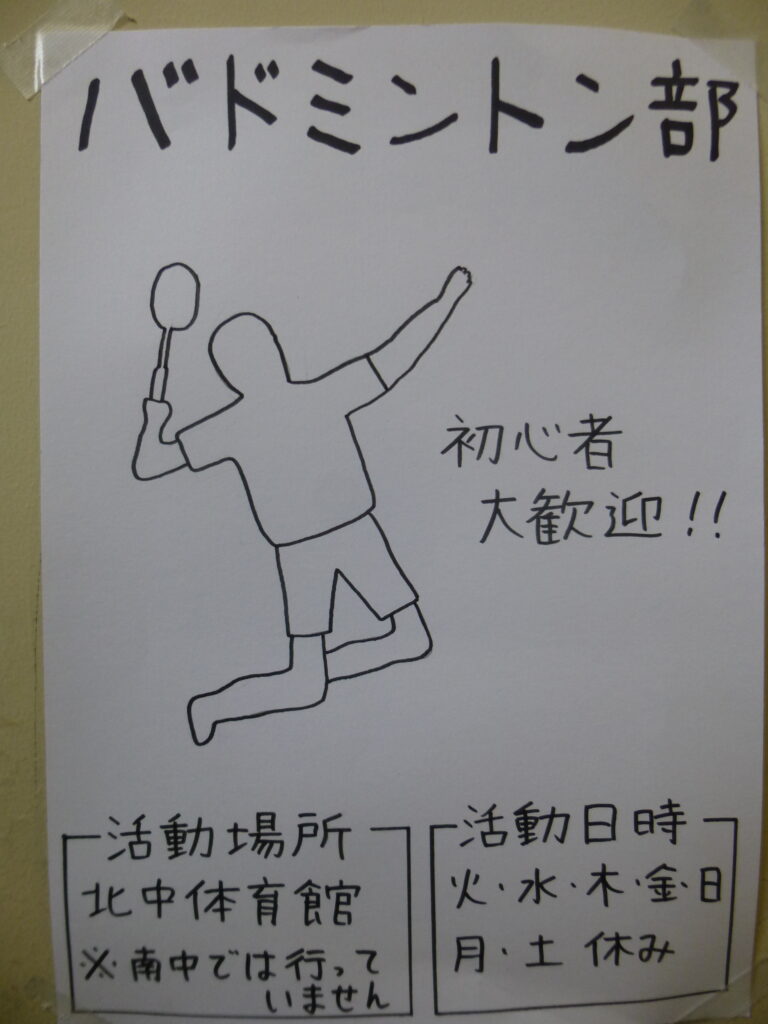 バドミントン部
初心者
大歓迎!!
活動場所
北中体育館
※南中では行って
いません
活動日時
火・水・木・金・日
月・土 休み